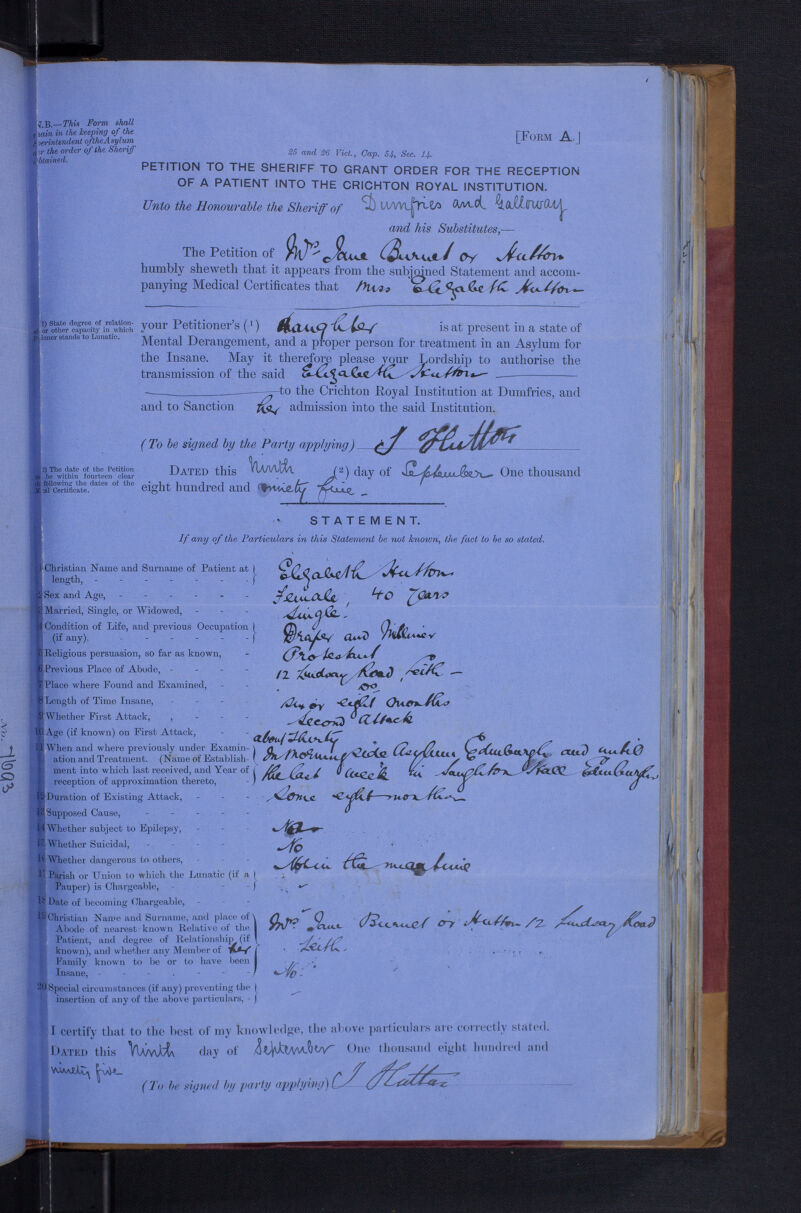 N.B.—This Form shall
in the keeping of the
Superintendent of the Asylum
the order of the Sheriff
obtained.
[FORM A.]
25 and 26 Vict., Cap. 54, Sec. 14.
PETITION TO THE SHERIFF TO GRANT ORDER FOR THE RECEPTION
OF A PATIENT INTO THE CRICHTON ROYAL INSTITUTION.
Unto the Honourable the Sheriff of Dumfries and Galloway
and his Substitutes,—
The Petition of Mrs Jane Burnet or Hutton
humbly sheweth that it appears from the subjoined Statement and accom-
panying Medical Certificates that Miss Elizabeth Hutton
(1) State degree of relation-
or other capacity in which
stands to Lunatic.
your Petitioner's (1) daughter is at present in a state of
Mental Derangement, and a proper person for treatment in an Asylum for
the Insane. May it therefore please your Lordship to authorise the
transmission of the said Elizabeth Hutton
to the Crichton Royal Institution at Dumfries, and
and to Sanction her admission into the said Institution.
(To be signed by the Party applying) J Hutton
(2) The date of the Petition
be within fourteen clear
following the dates of the
Certificate.
DATED this Ninth (2) day of September One thousand
eight hundred and ninety five
STATEMENT.
If any of the Particulars in this Statement be not known, the fact to be so stated.
Christian Name and Surname of Patient at
length, - Elizabeth Hutton
Sex and Age, - Female, 40 Years
Married, Single, or Widowed, - Single.
Condition of Life, and previous Occupation
(if any). - Draper and Milliner
Religious persuasion, so far as known, - Protestant
Previous Place of Abode, - 12 Lindsay Road, Leith
7 Place where Found and Examined, - Do
8 Length of Time Insane, - Six or eight months
9 Whether First Attack, - Second Attack
10 Age (if known) on First Attack, about Thirty
11 When and where previously under Examin-
ation and Treatment. (Name of Establish-
ment into which last received, and Year of
reception of approximation thereto, -
In Morningside Asylum Edinburgh and until
the last week in Saughton Hall Edinburgh
12 Duration of Existing Attack, - Some eight months
13 Supposed Cause, -
14 Whether subject to Epilepsy, - No
15 Whether Suicidal, - No
16 Whether dangerous to others, - Not in the meantime
17 Parish or Union to which the Lunatic (if a
Pauper) is Chargeable, -
18 Date of becoming Chargeable, -
19 Christian Name and Surname, and place of
Abode of nearest known Relative of the
Patient, and degree of Relationship (if
known), and whether any Member of her
Family known to be or to have been
Insane, -
Mrs Jane Burnet or Hutton 12 Lindsay Road
Leith.
No.
20 Special circumstances (if any) preventing the
insertion of any of the above particulars, -
I certify that to the best of my knowledge, the above particulars are correctly stated.
DATED this Ninth day of September One thousand eight hundred and
ninety five
(To be signed by party applying) J Hutton